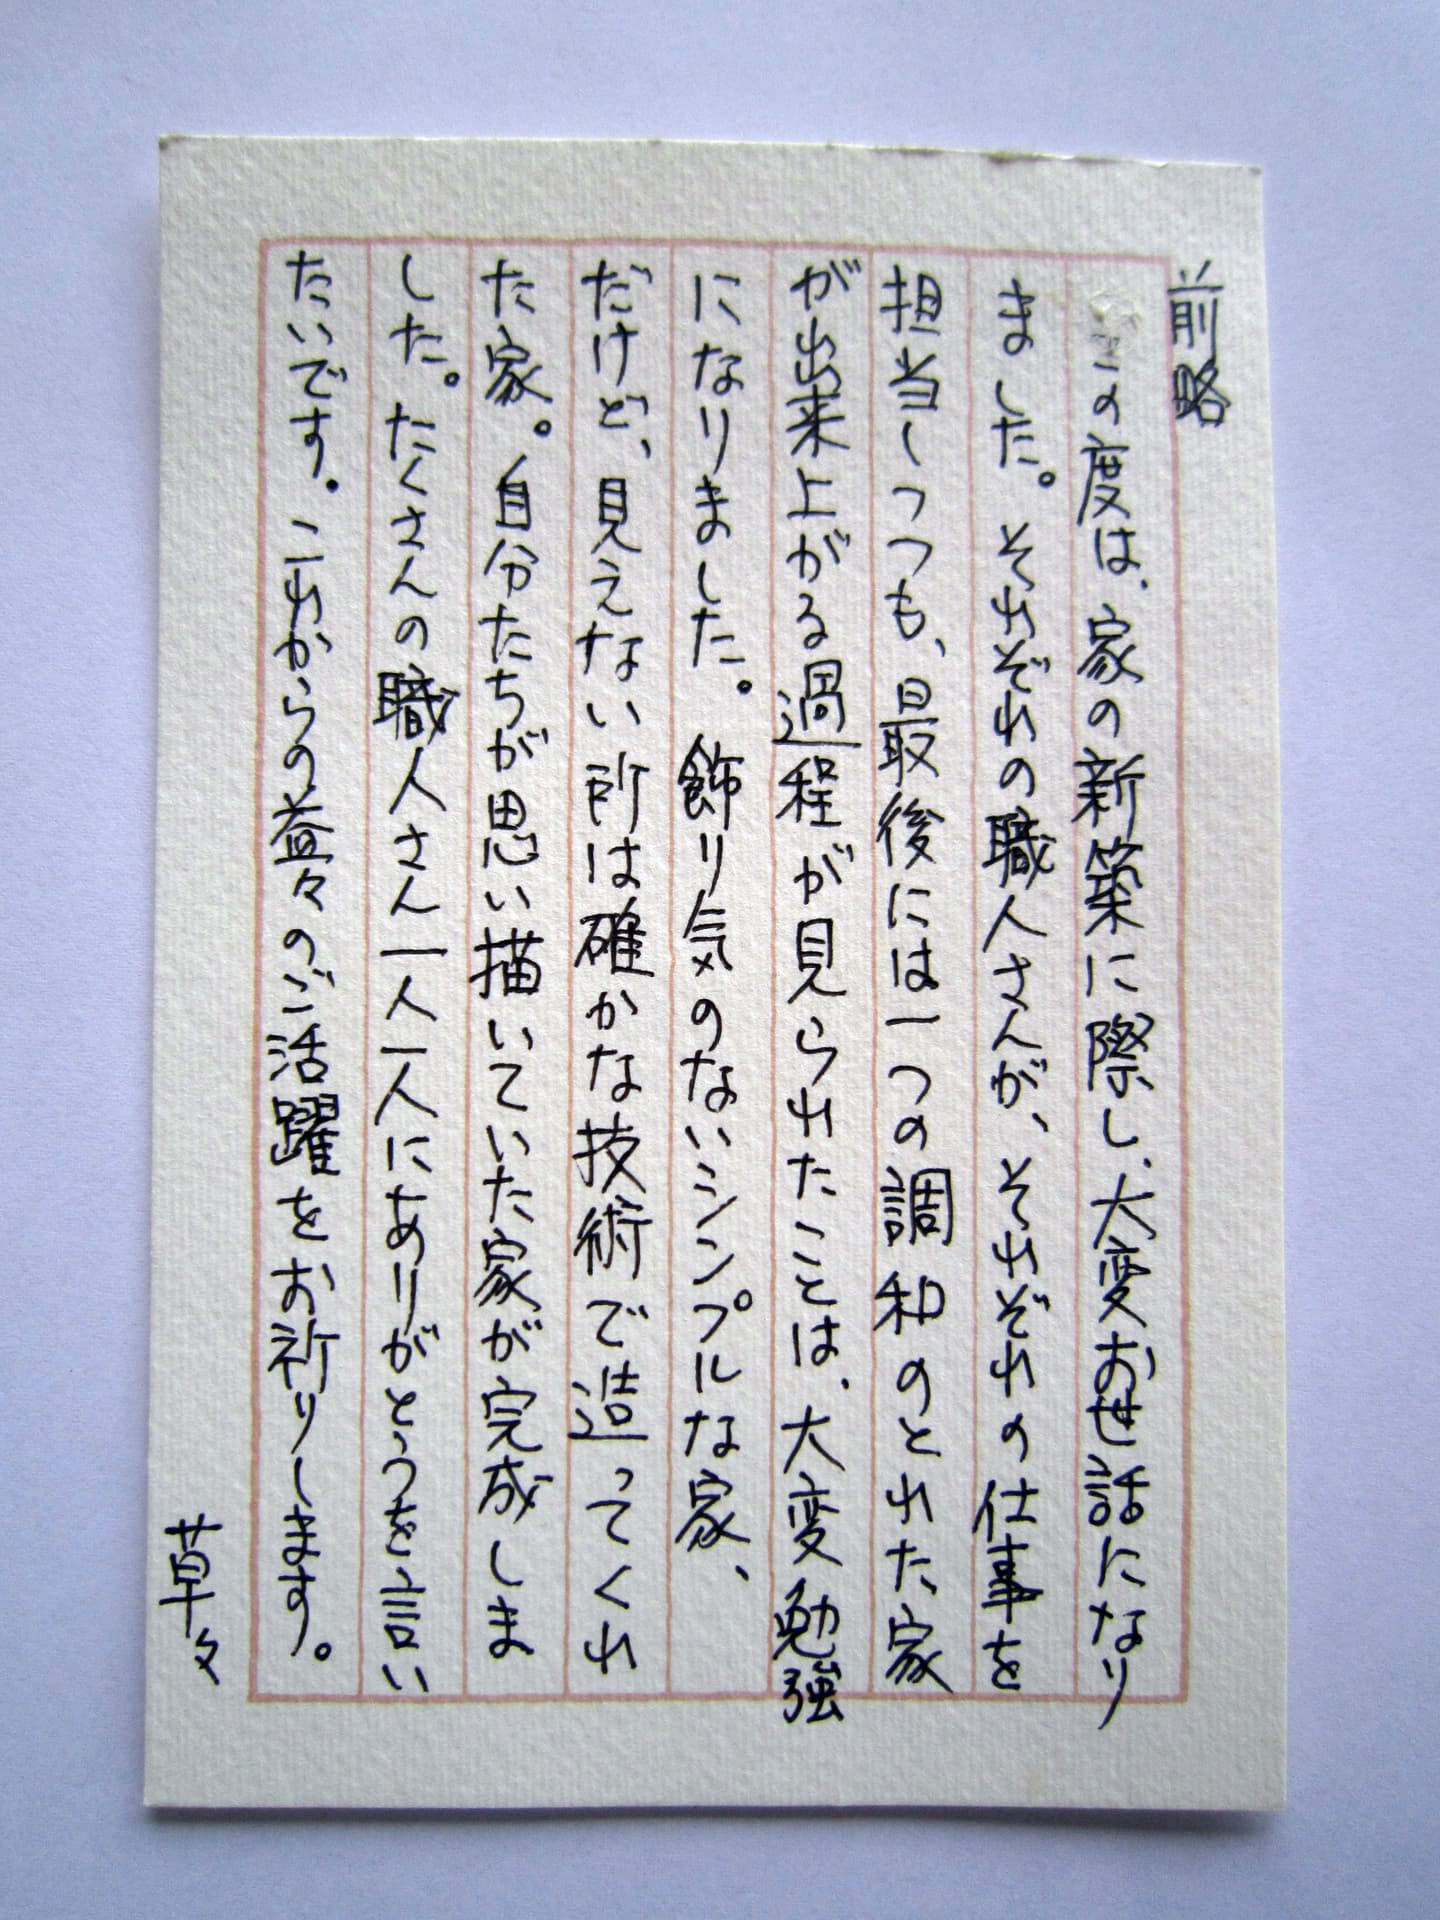 前略
この度は、家の新築に際し、大変お世話になり
ました。それぞれの職人さんが、それぞれの仕事を
担当しつつも、最後には一つの調和のとれた家
が出来上がる過程が見られたことは、大変勉強
になりました。飾り気のないシンプルな家、
だけど、見えない所は確かな技術で造ってくれ
た家。自分たちが思い描いていた家が完成しま
した。たくさんの職人さん一人一人にありがとうを言い
たいです。これからの益々のご活躍をお祈りします。
草々